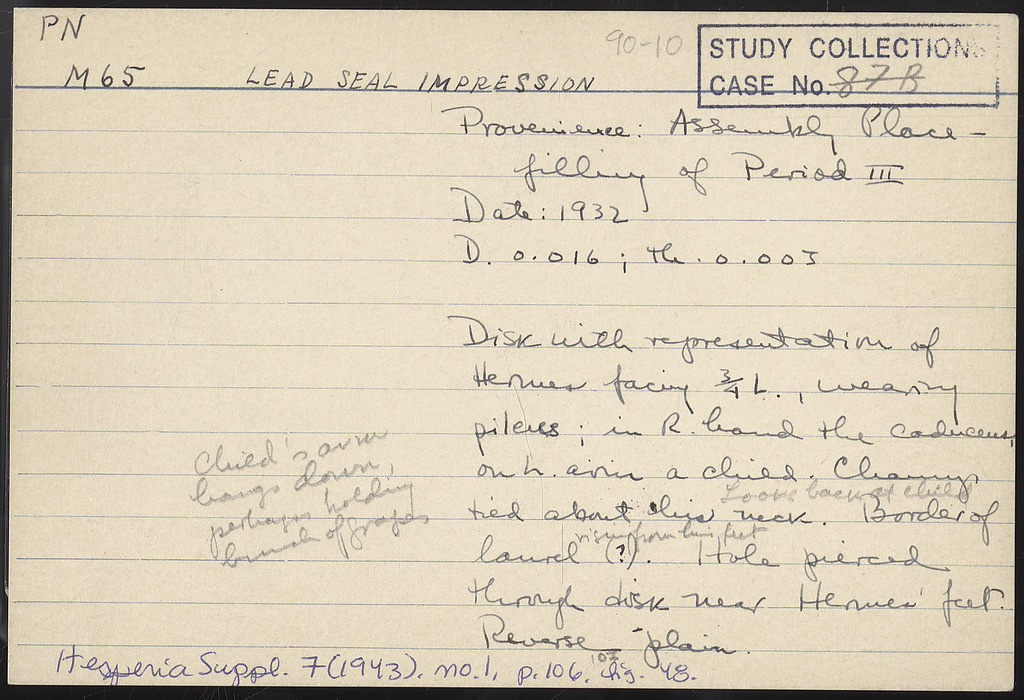 PN
90-10
STUDY COLLECTION
CASE No. 87 B
M 65 LEAD SEAL IMPRESSION
Provenience: Assembly Place -
filling of Period III
Date: 1932
D. 0.016 ; th. 0.003
Disk with representation of
Hermes facing 3/4 L., wearing
pileus ; in R. hand the caduceus,
on L. arm a child. Chlamys
Looks back at child
tied about his neck. Border of
rising from his feet
laurel (?). Hole pierced
through disk near Hermes' feet.
Reverse plain.
Child's arm
hangs down,
perhaps holding
bunch of grapes
Hesperia Suppl. 7 (1943). no. 1, p. 106, fig. 48.
107